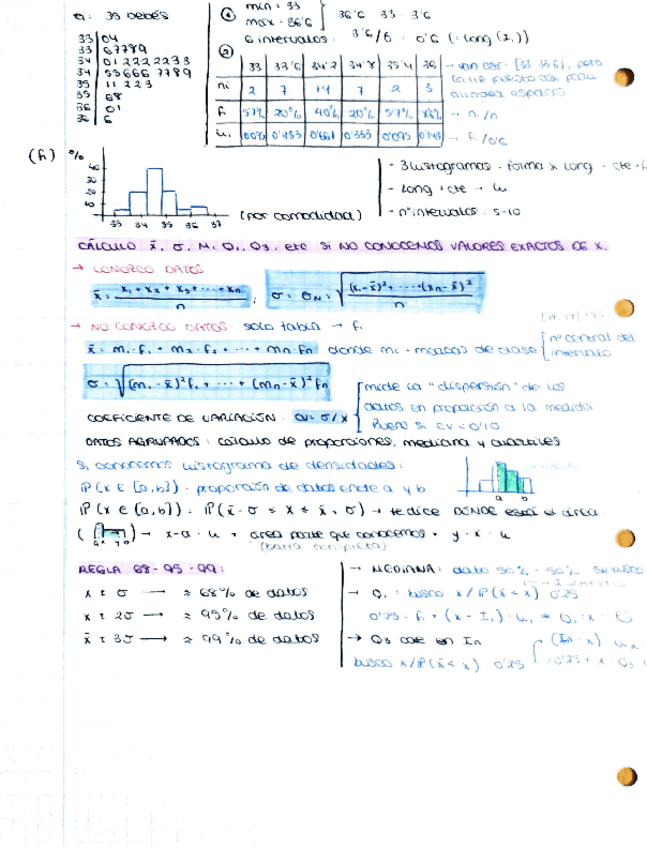 ej: 35 bebés
33 | 04
33 | 67789
34 | 012222233
34 | 55666 7789
35 | 11 223
35 | 68
36 | 01
36 | 6
① min = 33
max = 36'6
36'6 - 33 = 3'6
6 intervalos: 3'6/6 = 0'6 (= long (I₁))
②
33 | 33'6 | 34'2 | 34'8 | 35'4 | 36 → van así: [33, 33'6), pero
ni | 2 | 7 | 14 | 7 | 2 | 3
fi | 5'7% | 20% | 40% | 20% | 5'7% | 8'6% → ni/n
ui | 0'095 | 0'333 | 0'661 | 0'333 | 0'095 | 0'143 → fi/0'6
(fi) %
40
30
20
10
33 34 35 36 37 (por comodidad)
- 3 histogramas - forma x long = cte
- long ≠ cte → ui
- nº intervalos: 5-10
CÁLCULO x̄, σ, M, Q₁, Q₃, etc SI NO CONOCEMOS VALORES EXACTOS DE X.
→ CONOZCO DATOS
x̄ = (x₁ + x₂ + x₃ + ... + xn)/n ; σ = σN = √((x₁-x̄)² + ... + (xn-x̄)²)/n
→ NO CONOZCO DATOS: solo tabla → fi
x̄ = m₁·f₁ + m₂·f₂ + ... + mn·fn donde mi = marcas de clase [nº central del intervalo
σ = √(m₁-x̄)²f₁ + ... + (mn-x̄)²fn
COEFICIENTE DE VARIACIÓN: CV = σ/x̄
[mide la "dispersión" de los
datos en proporción a la medida
Bueno si CV < 0'10
DATOS AGRUPADOS: cálculo de proporciones, mediana y cuartiles
Si conocemos histograma de densidades:
P(x ∈ [a,b]) = proporción de datos entre a y b
a b
P(x ∈ [a,b]) = P(x̄-σ ≤ x ≤ x̄+σ) → te dice DÓNDE está el área
→ x-a · u + área parte que conocemos + y-x · u
(barra completa)
REGLA 68-95-99:
x̄ ± σ → ≈ 68% de datos
x̄ ± 2σ → ≈ 95% de datos
x̄ ± 3σ → ≈ 99% de datos
→ MEDIANA: dato 50% - 50%
→ Q₁: busco x / P(x̄ < x) = 0'25
0'25 = f₁ + (x - I₁) · u₁
→ Q₃ cae en In
busco x / P(x̄ < x) = 0'25